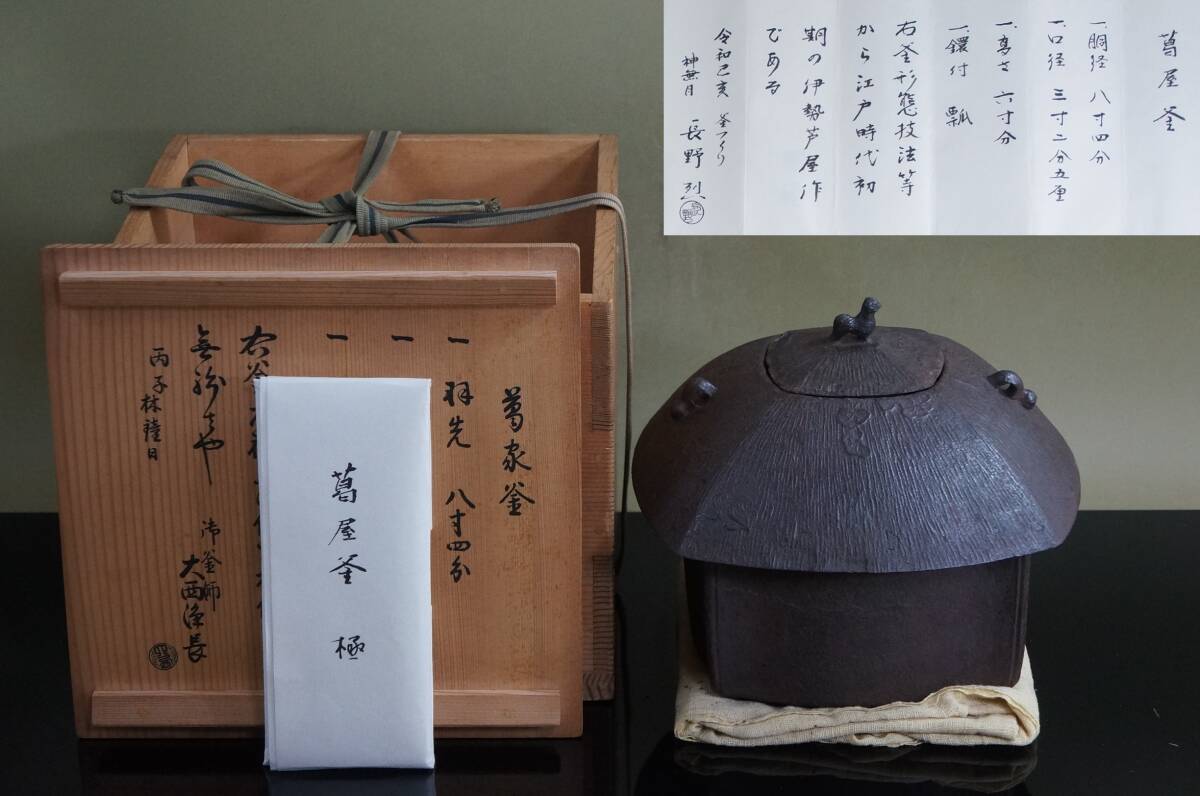 葛屋釜
一、胴径 八寸四分
一、口径 三寸二分五厘
一、高さ 六寸分
一、鐶付 瓢
右釜形態技法等
から江戸時代初
期の伊勢芦屋作
である
令和己亥 釜つくり
神無月 長野 烈
葛家釜
一 羽先 八寸四分
一
一
右釜
無紛さや
丙子林鐘日
御釜師
大西浄長
葛屋釜 極